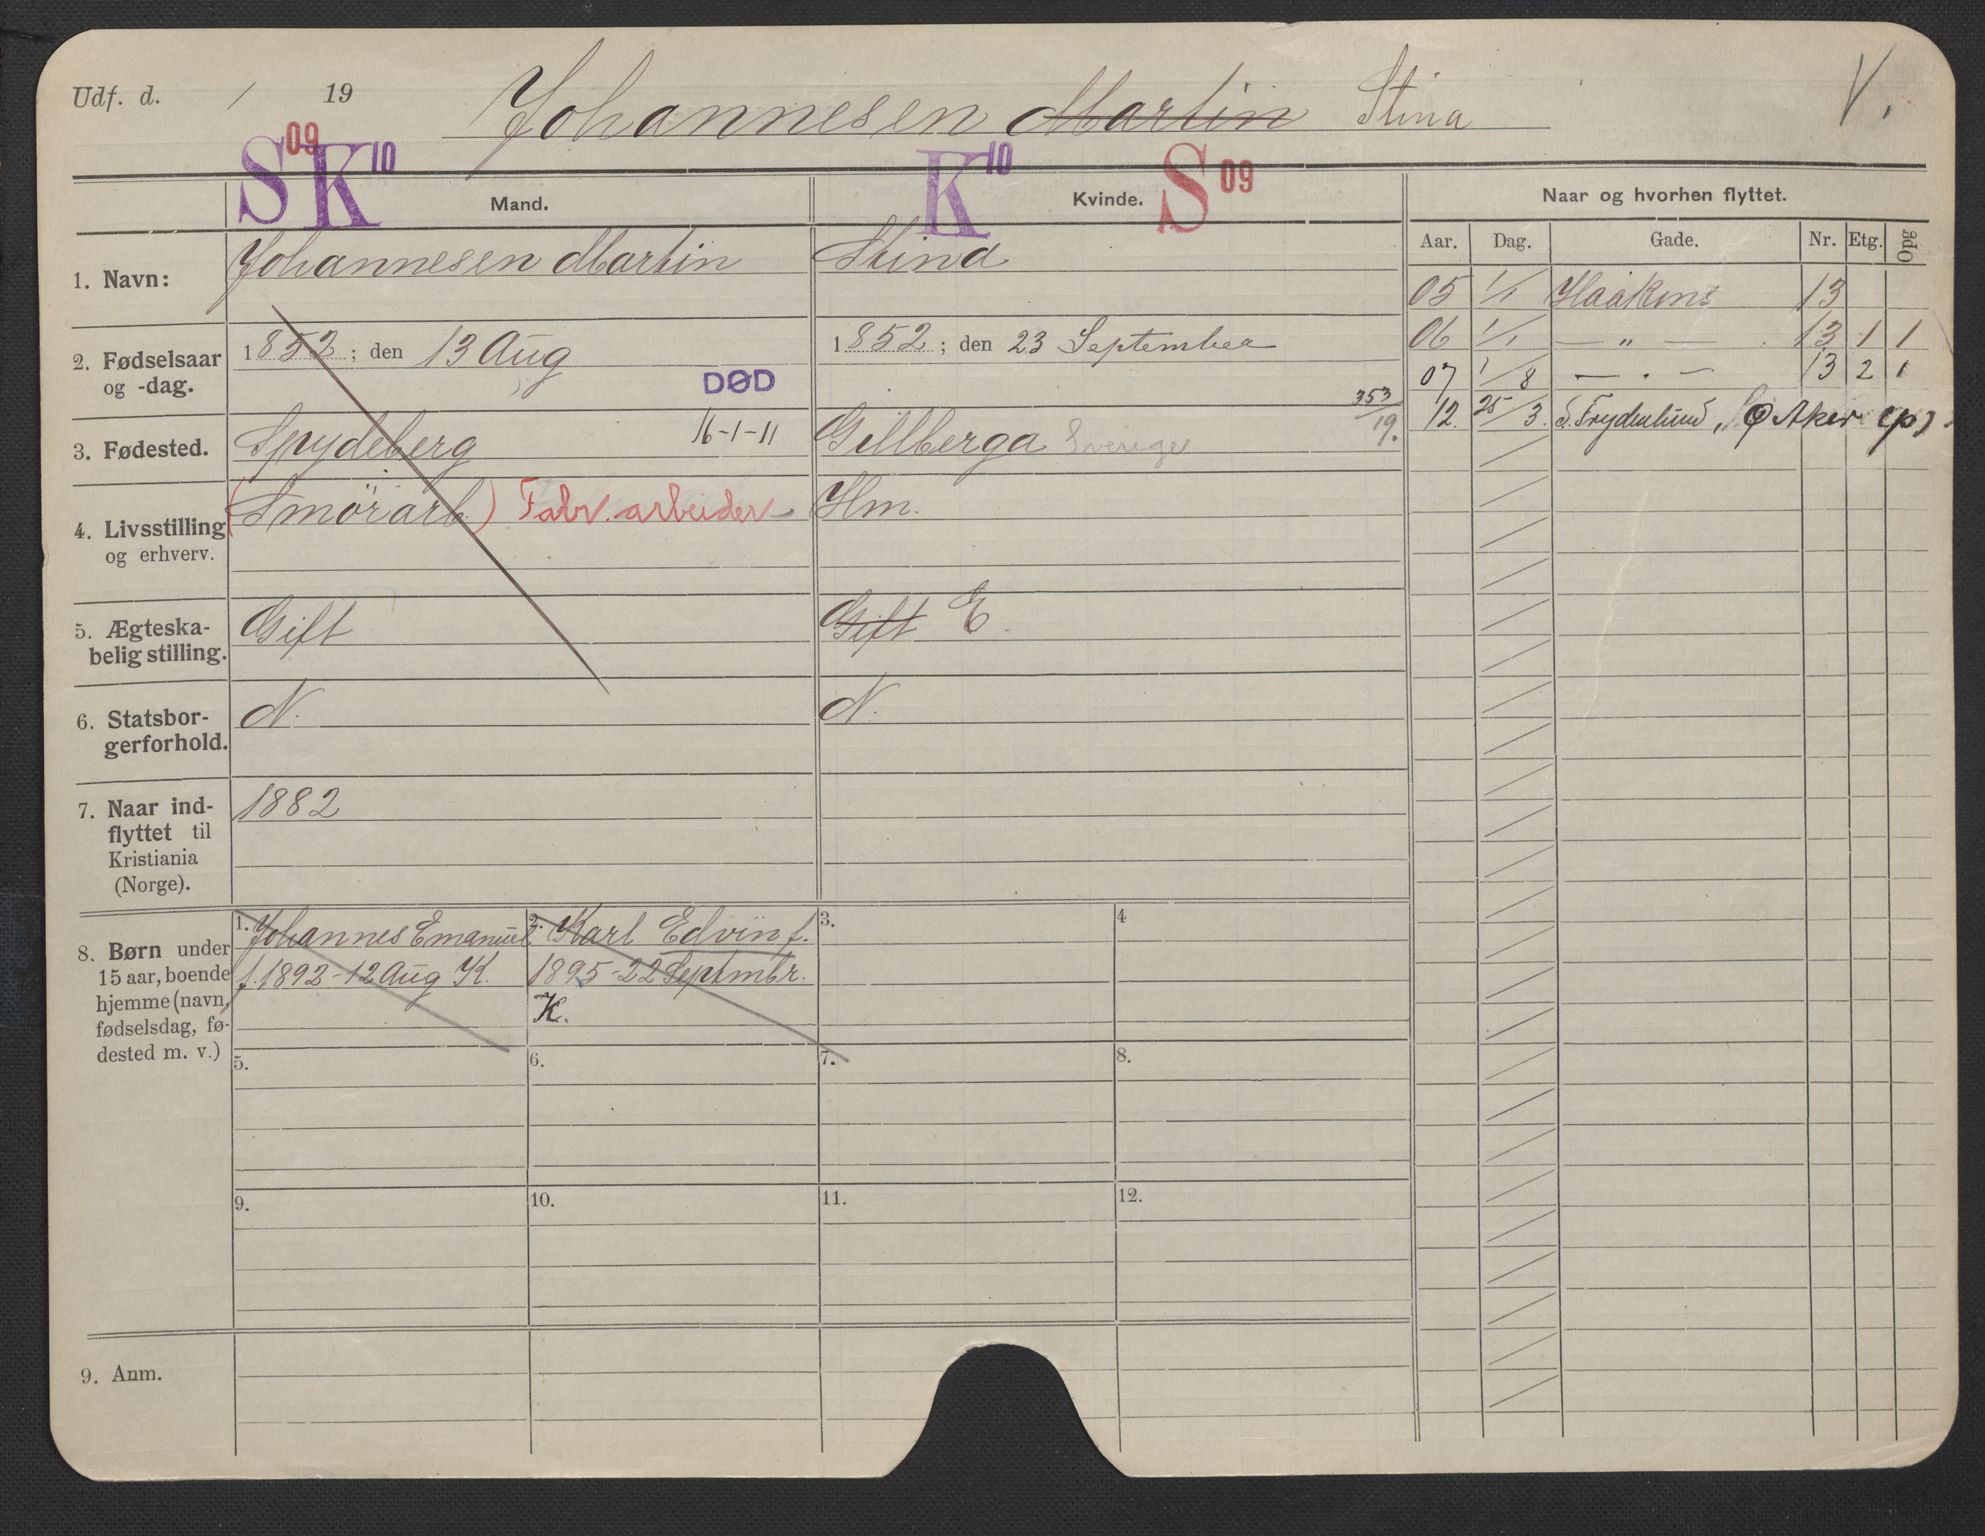 Udf. d. / 19
Johannesen Martin Stina V.
S 09 K 10 K 10 S 09
Mand. Kvinde. Naar og hvorhen flyttet.
Aar. Dag. Gade. Nr. Etg. Opg
1. Navn: Johannesen Martin Stina
05 1/1 Haakons 13
06 1/1 — „ — 13 1 1
07 1/8 — . — 13 2 1
12. 25/3. S. Frydenlund, Ø Aker (p)
2. Fødselsaar og -dag.
1852; den 13 Aug 1852; den 23 September
DØD
16-1-11
353/19.
3. Fødested. Spydeberg Gillberga Sverige
4. Livsstilling og erhverv.
(Smörarb.) Fabr. arbeider Hm.
5. Ægteska-
belig stilling.
Gift Gift E.
6. Statsbor-
gerforhold.
N. N.
7. Naar ind-
flyttet til
Kristiania
(Norge).
1882
8. Børn under
15 aar, boende
hjemme (navn,
fødselsdag, fø-
dested m. v.)
1. Johannes Emanuel
f. 1892-12 Aug K.
2. Karl Edvin f.
1895-22 Septmbr.
K.
3. 4
5. 6. 7. 8.
9. 10. 11. 12.
9. Anm.